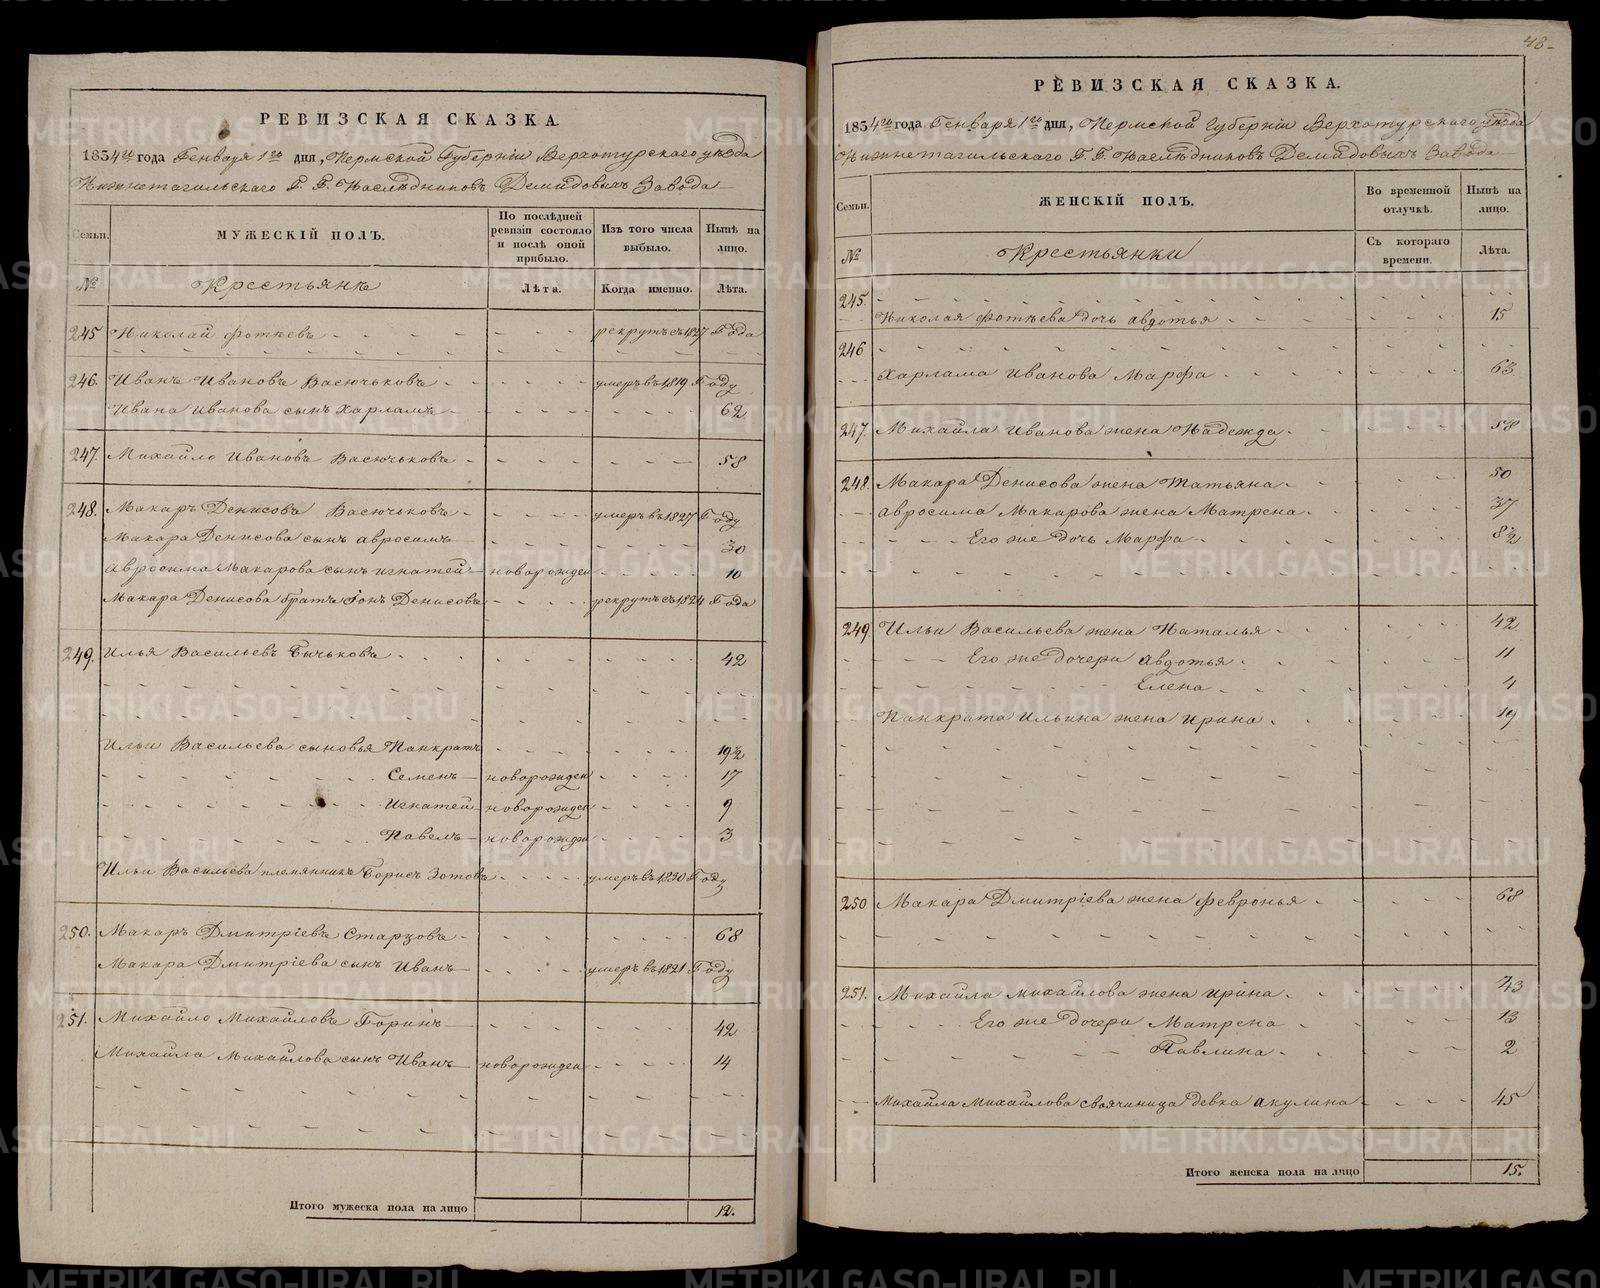 РЕВИЗСКАЯ СКАЗКА.
1834го года Генваря 1го дня, Пермской Губерніи Верхотурского уѣзда
Нижнетагильскаго Г. Г. Наслѣдниковъ Демидовыхъ Завода
Семьи.
МУЖЕСКІЙ ПОЛЪ.
По послѣдней ревизіи состояло и послѣ оной прибыло.
Изъ того числа выбыло.
Нынѣ на лицо.
№
Крестьянъ
Лѣта.
Когда именно.
Лѣта.
245 Николай Фотѣевъ рекрутъ съ 1827 Года
246. Иванъ Ивановъ Васючьковъ умеръ въ 1819 Году
Ивана Иванова сынъ Харламъ 62
247. Михайло Ивановъ Васючьковъ 58
248. Макаръ Денисовъ Васючьковъ умеръ въ 1827 Году
Макара Денисова сынъ Авросимъ 30
Авросима Макарова сынъ Игнатей новорожден 10
Макара Денисова братъ Іонъ Денисовъ рекрутъ съ 1824 Года
249. Илья Васильевъ Бычьковъ 42
Ильи Васильева сыновья Панкратъ 19½
Семенъ новорожден 17
Игнатей новорожден 9
Павелъ новорожден 3
Ильи Васильева племянникъ Борисъ Зотовъ умеръ въ 1830 Году
250. Макаръ Дмитріевъ Старцовъ 68
Макара Дмитріева сынъ Иванъ умеръ въ 1821 Году
251. Михайло Михайловъ Горинъ 42
Михайла Михайлова сынъ Иванъ новорожден 14
Итого мужеска пола на лицо 12.
48
РЕВИЗСКАЯ СКАЗКА.
1834го года Генваря 1го дня, Пермской Губерніи Верхотурскаго уѣзда
Нижнетагильскаго Г. Г. Наслѣдниковъ Демидовыхъ Завода
Семьи.
ЖЕНСКІЙ ПОЛЪ.
Во временной отлучкѣ.
Нынѣ на лицо.
№
Крестьянки
Съ котораго времени.
Лѣта.
245.
Николая Фотѣева дочь Авдотья 15
246
Харлама Иванова Марфа 63
247. Михайла Иванова жена Надежда 58
248. Макара Денисова жена Татьяна 50
Авросима Макарова жена Матрена 37
Его же дочь Марфа 8½
249. Ильи Васильева жена Наталья 42
Его же дочери Авдотья 11
Елена 4
Панкрата Ильина жена Ирина 19
250 Макара Дмитріева жена Февронья 68
251. Михайла Михайлова жена Ирина 43
Его же дочери Матрена 13
Павлина 2
Михайла Михайлова своячиница девка Акулина 45
Итого женска пола на лицо 15.
METRIKI.GASO-URAL.RU